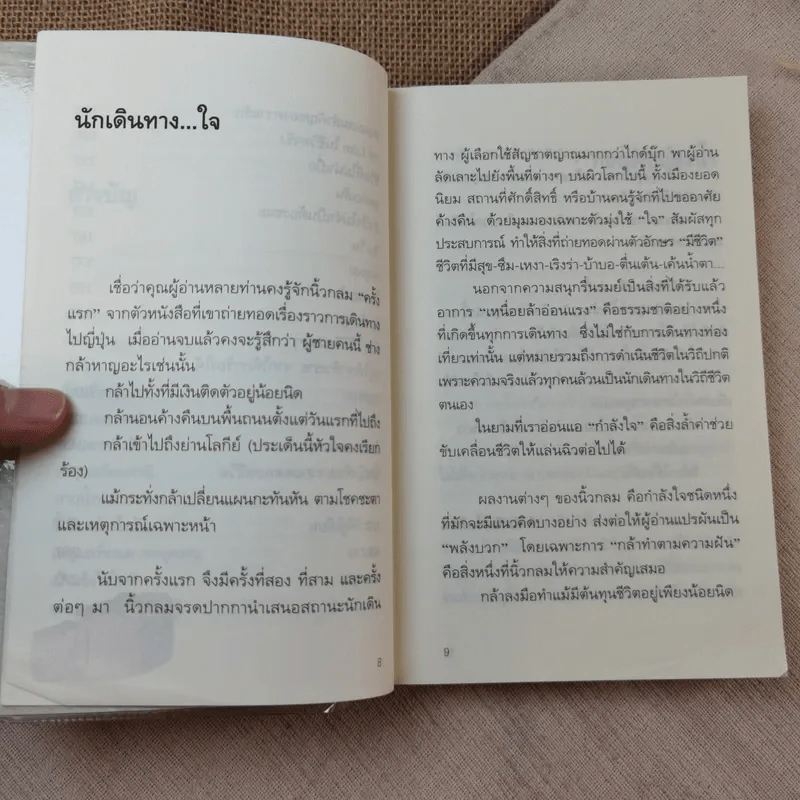 นักเดินทาง...ใจ
เชื่อว่าคุณผู้อ่านหลายท่านคงรู้จักนิ้วกลม “ครั้ง
แรก” จากตัวหนังสือที่เขาถ่ายทอดเรื่องราวการเดินทาง
ไปญี่ปุ่น เมื่ออ่านจบแล้วคงจะรู้สึกว่า ผู้ชายคนนี้ ช่าง
กล้าหาญอะไรเช่นนั้น
กล้าไปทั้งที่มีเงินติดตัวอยู่น้อยนิด
กล้านอนค้างคืนบนพื้นถนนตั้งแต่วันแรกที่ไปถึง
กล้าเข้าไปถึงย่านโลกีย์ (ประเด็นนี้หัวใจคงเรียก
ร้อง)
แม้กระทั่งกล้าเปลี่ยนแผนกะทันหัน ตามโชคชะตา
และเหตุการณ์เฉพาะหน้า
นับจากครั้งแรก จึงมีครั้งที่สอง ที่สาม และครั้ง
ต่อๆ มา นิ้วกลมจรดปากกานำเสนอสถานะนักเดิน
8
ทาง ผู้เลือกใช้สัญชาตญาณมากกว่าไกด์บุ๊ก พาผู้อ่าน
ลัดเลาะไปยังพื้นที่ต่างๆ บนผิวโลกใบนี้ ทั้งเมืองยอด
นิยม สถานที่ศักดิ์สิทธิ์ หรือบ้านคนรู้จักที่ไปขออาศัย
ค้างคืน ด้วยมุมมองเฉพาะตัวมุ่งใช้ “ใจ” สัมผัสทุก
ประสบการณ์ ทำให้สิ่งที่ถ่ายทอดผ่านตัวอักษร “มีชีวิต”
ชีวิตที่มีสุข-ซึม-เหงา-เริงร่า-บ้าบอ-ตื่นเต้น-เค้นน้ำตา...
นอกจากความสนุกรื่นรมย์เป็นสิ่งที่ได้รับแล้ว
อาการ “เหนื่อยล้าอ่อนแรง” คือธรรมชาติอย่างหนึ่ง
ที่เกิดขึ้นทุกการเดินทาง ซึ่งไม่ใช่กับการเดินทางท่อง
เที่ยวเท่านั้น แต่หมายรวมถึงการดำเนินชีวิตในวิถีปกติ
เพราะความจริงแล้วทุกคนล้วนเป็นนักเดินทางในวิถีชีวิต
ตนเอง
ในยามที่เราอ่อนแอ “กำลังใจ” คือสิ่งล้ำค่าช่วย
ขับเคลื่อนชีวิตให้แล่นฉิวต่อไปได้
ผลงานต่างๆ ของนิ้วกลม คือกำลังใจชนิดหนึ่ง
ที่มักจะมีแนวคิดบางอย่าง ส่งต่อให้ผู้อ่านแปรผันเป็น
“พลังบวก” โดยเฉพาะการ “กล้าทำตามความฝัน”
คือสิ่งหนึ่งที่นิ้วกลมให้ความสำคัญเสมอ
กล้าลงมือทำแม้มีต้นทุนชีวิตอยู่เพียงน้อยนิด
9